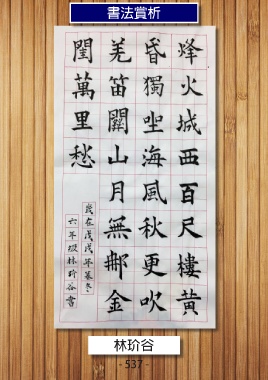 書法賞析
烽火城西百尺樓黃
昏獨坐海風秋更吹
羌笛關山月無那金
閨萬里愁
歲在戊戌年暮冬
六年級林玠谷書
林玠谷
- 537 -